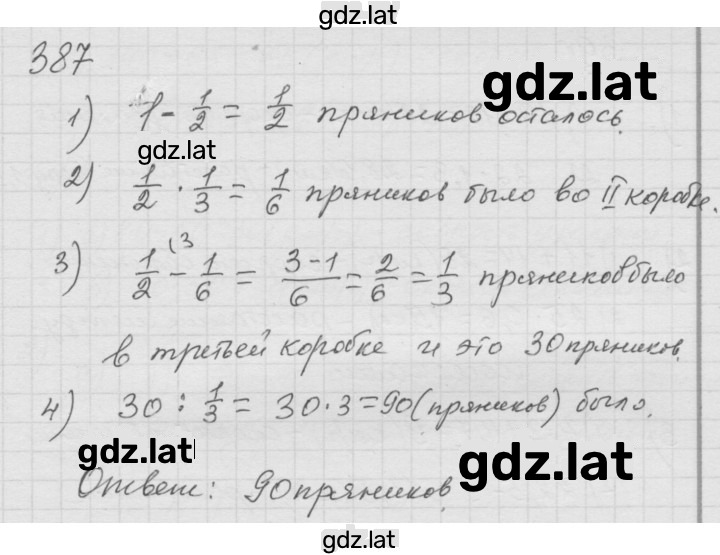 gdz.lat
387
gdz.lat
1) 1 - 1/2 = 1/2 пряников осталось.
gdz.lat
2) 1/2 · 1/3 = 1/6 пряников было во II коробке.
3) 1/2 (3 - 1/6 = 3-1/6 = 2/6 = 1/3 пряников было
в третьей коробке и это 30 пряников.
4) 30 : 1/3 = 30 · 3 = 90 (пряников) было.
gdz.lat
gdz.lat
Ответ: 90 пряников.
gdz.lat